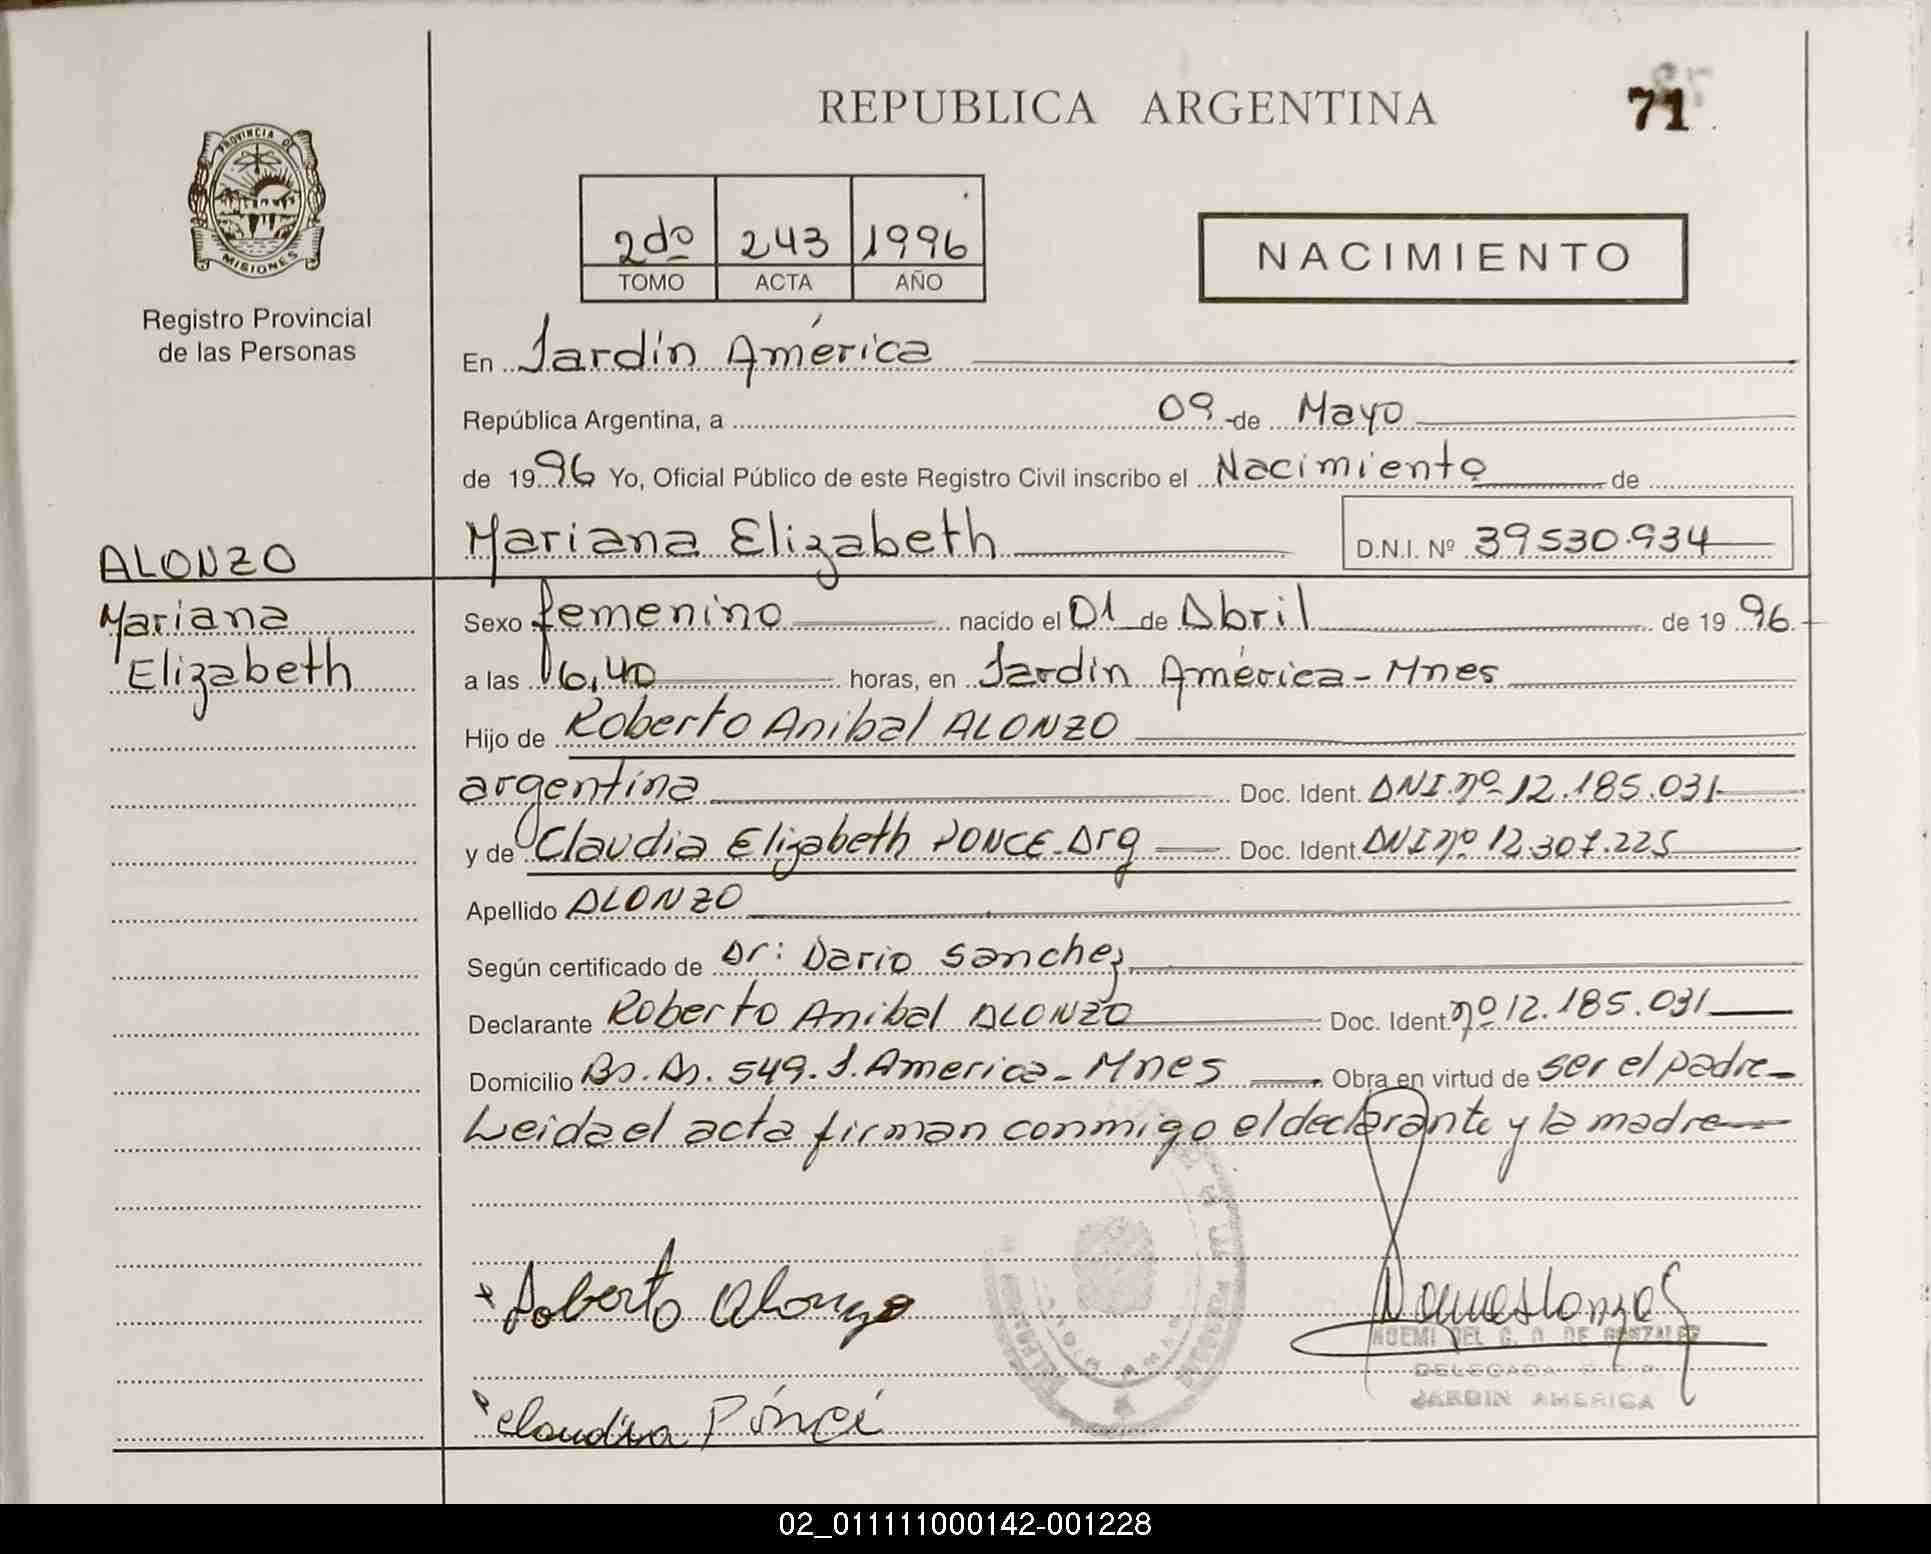 REPUBLICA ARGENTINA
71
PROVINCIA DE
MISIONES
Registro Provincial
de las Personas
2do 243 1996
TOMO ACTA AÑO
NACIMIENTO
En Jardín América
República Argentina, a 09 de Mayo
de 1996 Yo, Oficial Público de este Registro Civil inscribo el Nacimiento de
Mariana Elizabeth D.N.I. Nº 39530.934
ALONZO
Mariana
Elizabeth
Sexo femenino nacido el 01 de Abril de 1996
a las 16,40 horas, en Jardín América - Mnes
Hijo de Roberto Anibal ALONZO
argentina Doc. Ident. DNI.nº 12.185.031
y de Claudia Elizabeth PONCE-Arg Doc. Ident. DNI nº 12.307.225
Apellido ALONZO
Según certificado de Dr: Dario Sanchez
Declarante Roberto Anibal ALONZO Doc. Ident. nº 12.185.031
Domicilio Bs. As. 549. J. America - Mnes Obra en virtud de ser el padre
Leida el acta firman conmigo el declarante y la madre
Roberto Alonzo
NOEMI DEL C. O. DE GONZALEZ
DELEGADA R. P. P.
JARDIN AMERICA
Claudia
02_011111000142-001228